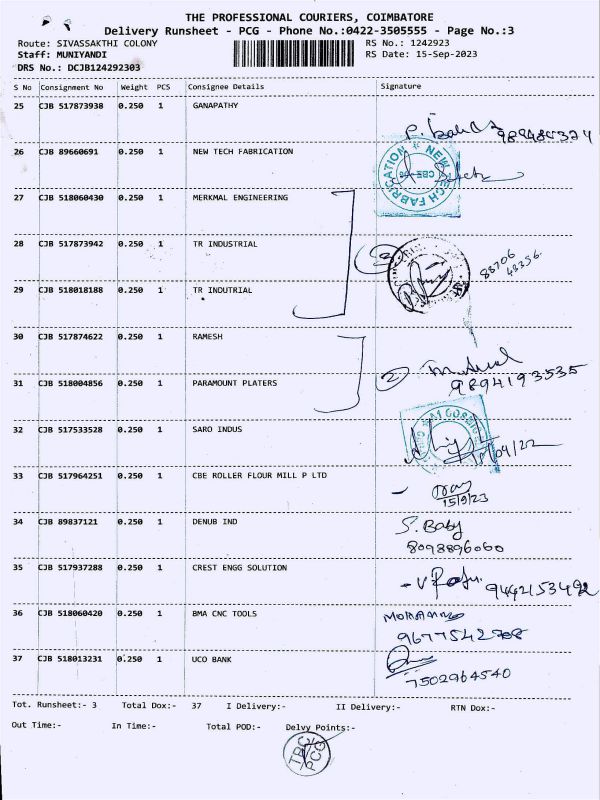 THE PROFESSIONAL COURIERS, COIMBATORE
Delivery Runsheet - PCG - Phone No.:0422-3505555 - Page No.:3
Route: SIVASSAKTHI COLONY RS No.: 1242923
Staff: MUNIYANDI RS Date: 15-Sep-2023
DRS No.: DCJB124292303
S No Consignment No Weight PCS Consignee Details Signature
25 CJB 517873938 0.250 1 GANAPATHY
26 CJB 89660691 0.250 1 NEW TECH FABRICATION
NEW TECH FABRICATION
CBE
27 CJB 518060430 0.250 1 MERKMAL ENGINEERING
28 CJB 517873942 0.250 1 TR INDUSTRIAL
3
88706
48356
29 CJB 518018188 0.250 1 TR INDUTRIAL
30 CJB 517874622 0.250 1 RAMESH
31 CJB 518004856 0.250 1 PARAMOUNT PLATERS
2
9894193535
32 CJB 517533528 0.250 1 SARO INDUS
33 CJB 517964251 0.250 1 CBE ROLLER FLOUR MILL P LTD
15/9/23
34 CJB 89837121 0.250 1 DENUB IND
S. Baby
8098896060
35 CJB 517937288 0.250 1 CREST ENGG SOLUTION
9442153492
36 CJB 518060420 0.250 1 BMA CNC TOOLS
37 CJB 518013231 0.250 1 UCO BANK
7502964540
Tot. Runsheet:- 3 Total Dox:- 37 I Delivery:- II Delivery:- RTN Dox:-
Out Time:- In Time:- Total POD:- Delvy Points:-
TPC
PCG